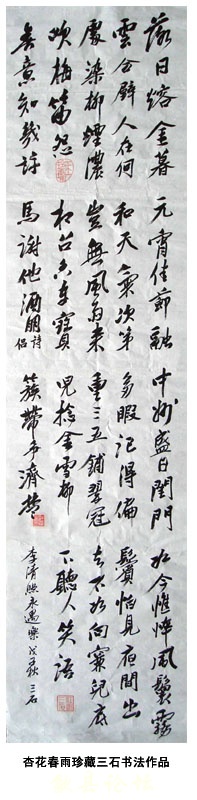 落日熔金暮
雲合璧人在何
處染柳煙濃
吹梅笛怨
春意知幾許
元宵佳節融
和天氣次第
豈無風雨來
相召香車寶
馬謝他酒朋詩侶
中州盛日閨門
多暇記得偏
重三五鋪翠冠
兒捻金雪柳
簇帶爭濟楚
如今憔悴風鬟霧
鬢怕見夜間出
去不如向簾兒底
下聽人笑語
李清照永遇樂 三石
杏花春雨珍藏三石书法作品